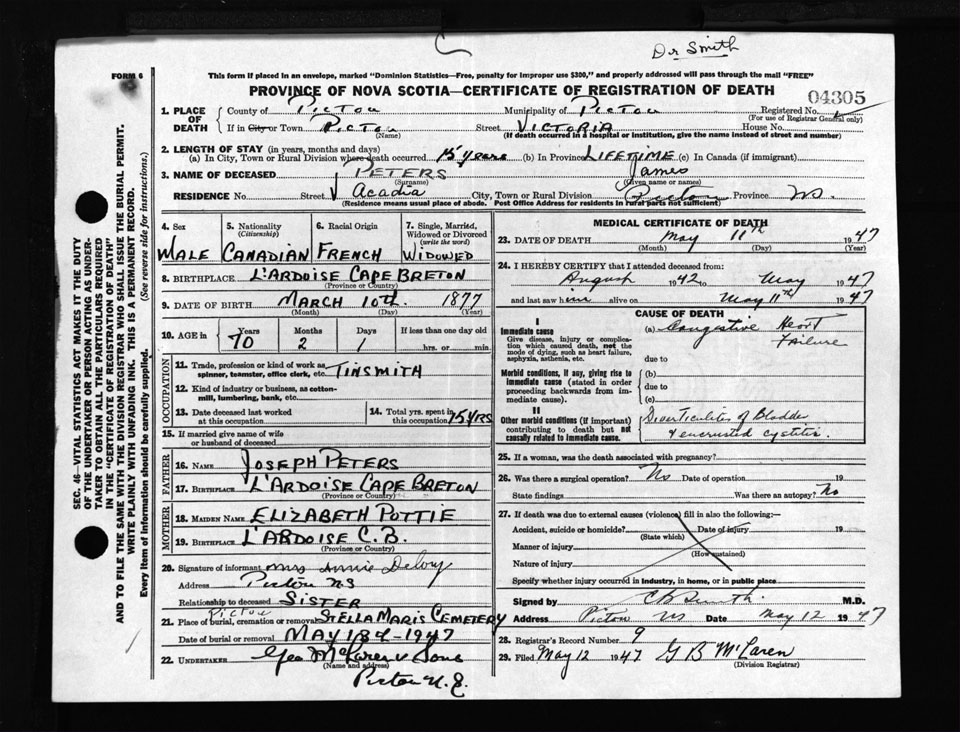 Dr Smith
FORM 6
This form if placed in an envelope, marked "Dominion Statistics—Free, penalty for improper use $300," and properly addressed will pass through the mail "FREE"
PROVINCE OF NOVA SCOTIA—CERTIFICATE OF REGISTRATION OF DEATH
04305
1. PLACE OF DEATH County of Pictou Municipality of Pictou Registered No.
(For use of Registrar General only)
If in City or Town Pictou Street VICTORIA House No.
(Name) (If death occurred in a hospital or institution, give the name instead of street and number)
2. LENGTH OF STAY (in years, months and days)
(a) In City, Town or Rural Division where death occurred 15 years (b) In Province LIFETIME (c) In Canada (if immigrant)
3. NAME OF DECEASED PETERS James
(Surname) (Given name or names)
RESIDENCE No. Street Acadia City, Town or Rural Division Pictou Province NS
(Residence means usual place of abode. Post Office Address for residents in rural parts not sufficient)
SEC. 46—VITAL STATISTICS ACT MAKES IT THE DUTY
OF THE UNDERTAKER OR PERSON ACTING AS UNDER-
TAKER TO OBTAIN ALL THE PARTICULARS REQUIRED
IN THE "CERTIFICATE OF REGISTRATION OF DEATH"
AND TO FILE THE SAME WITH THE DIVISION REGISTRAR WHO SHALL ISSUE THE BURIAL PERMIT.
WRITE PLAINLY WITH UNFADING INK. THIS IS A PERMANENT RECORD.
Every item of information should be carefully supplied. (See reverse side for instructions.)
4. Sex 5. Nationality (Citizenship) 6. Racial Origin 7. Single, Married, Widowed or Divorced (write the word)
MALE CANADIAN FRENCH WIDOWED
8. BIRTHPLACE L'ARDOISE CAPE BRETON
(Province or Country)
9. DATE OF BIRTH MARCH 10th. 1877
(Month) (Day) (Year)
10. AGE in Years Months Days If less than one day old
70 2 1 hrs. or min.
OCCUPATION
11. Trade, profession or kind of work as spinner, teamster, office clerk, etc. TINSMITH
12. Kind of industry or business, as cotton-mill, lumbering, bank, etc.
13. Date deceased last worked at this occupation 14. Total yrs. spent in this occupation 15 YRS
15. If married give name of wife or husband of deceased
FATHER
16. NAME JOSEPH PETERS
17. BIRTHPLACE L'ARDOISE CAPE BRETON
(Province or Country)
MOTHER
18. MAIDEN NAME ELIZABETH POTTIE
19. BIRTHPLACE L'ARDOISE C.B.
(Province or Country)
20. Signature of informant Mrs Annie Delory
Address Pictou NS
Relationship to deceased SISTER
21. Place of burial, cremation or removal Pictou STELLA MARIS CEMETERY
Date of burial or removal MAY 13th-1947
22. UNDERTAKER Geo McLaren & Sons
(Name and address)
Pictou N.S.
MEDICAL CERTIFICATE OF DEATH
23. DATE OF DEATH May 11th 1947
(Month) (Day) (Year)
24. I HEREBY CERTIFY that I attended deceased from:
August 1942 to May 1947
and last saw him alive on May 11th 1947
CAUSE OF DEATH
I
Immediate cause (a) Congestive Heart Failure
Give disease, injury or complication which caused death, not the mode of dying, such as heart failure, asphyxia, asthenia, etc. due to
Morbid conditions, if any, giving rise to immediate cause (stated in order proceeding backwards from immediate cause). (b) due to (c)
II
Other morbid conditions (if important) contributing to death but not causally related to immediate cause. Diverticulitis of Bladder
& encrusted cystitis.
25. If a woman, was the death associated with pregnancy?
26. Was there a surgical operation? No Date of operation 19
State findings Was there an autopsy? No
27. If death was due to external causes (violence) fill in also the following:—
Accident, suicide or homicide? Date of injury 19
(State which)
Manner of injury
(How sustained)
Nature of injury
Specify whether injury occurred in industry, in home, or in public place
Signed by CB Smith M.D.
Address Pictou NS Date May 12 1947
28. Registrar's Record Number 9
29. Filed May 12 1947 G B McLaren
(Division Registrar)